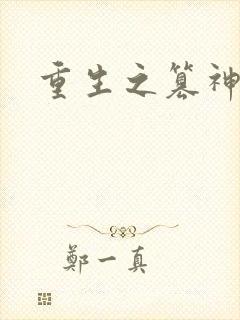 重生之篡神
鄭一真